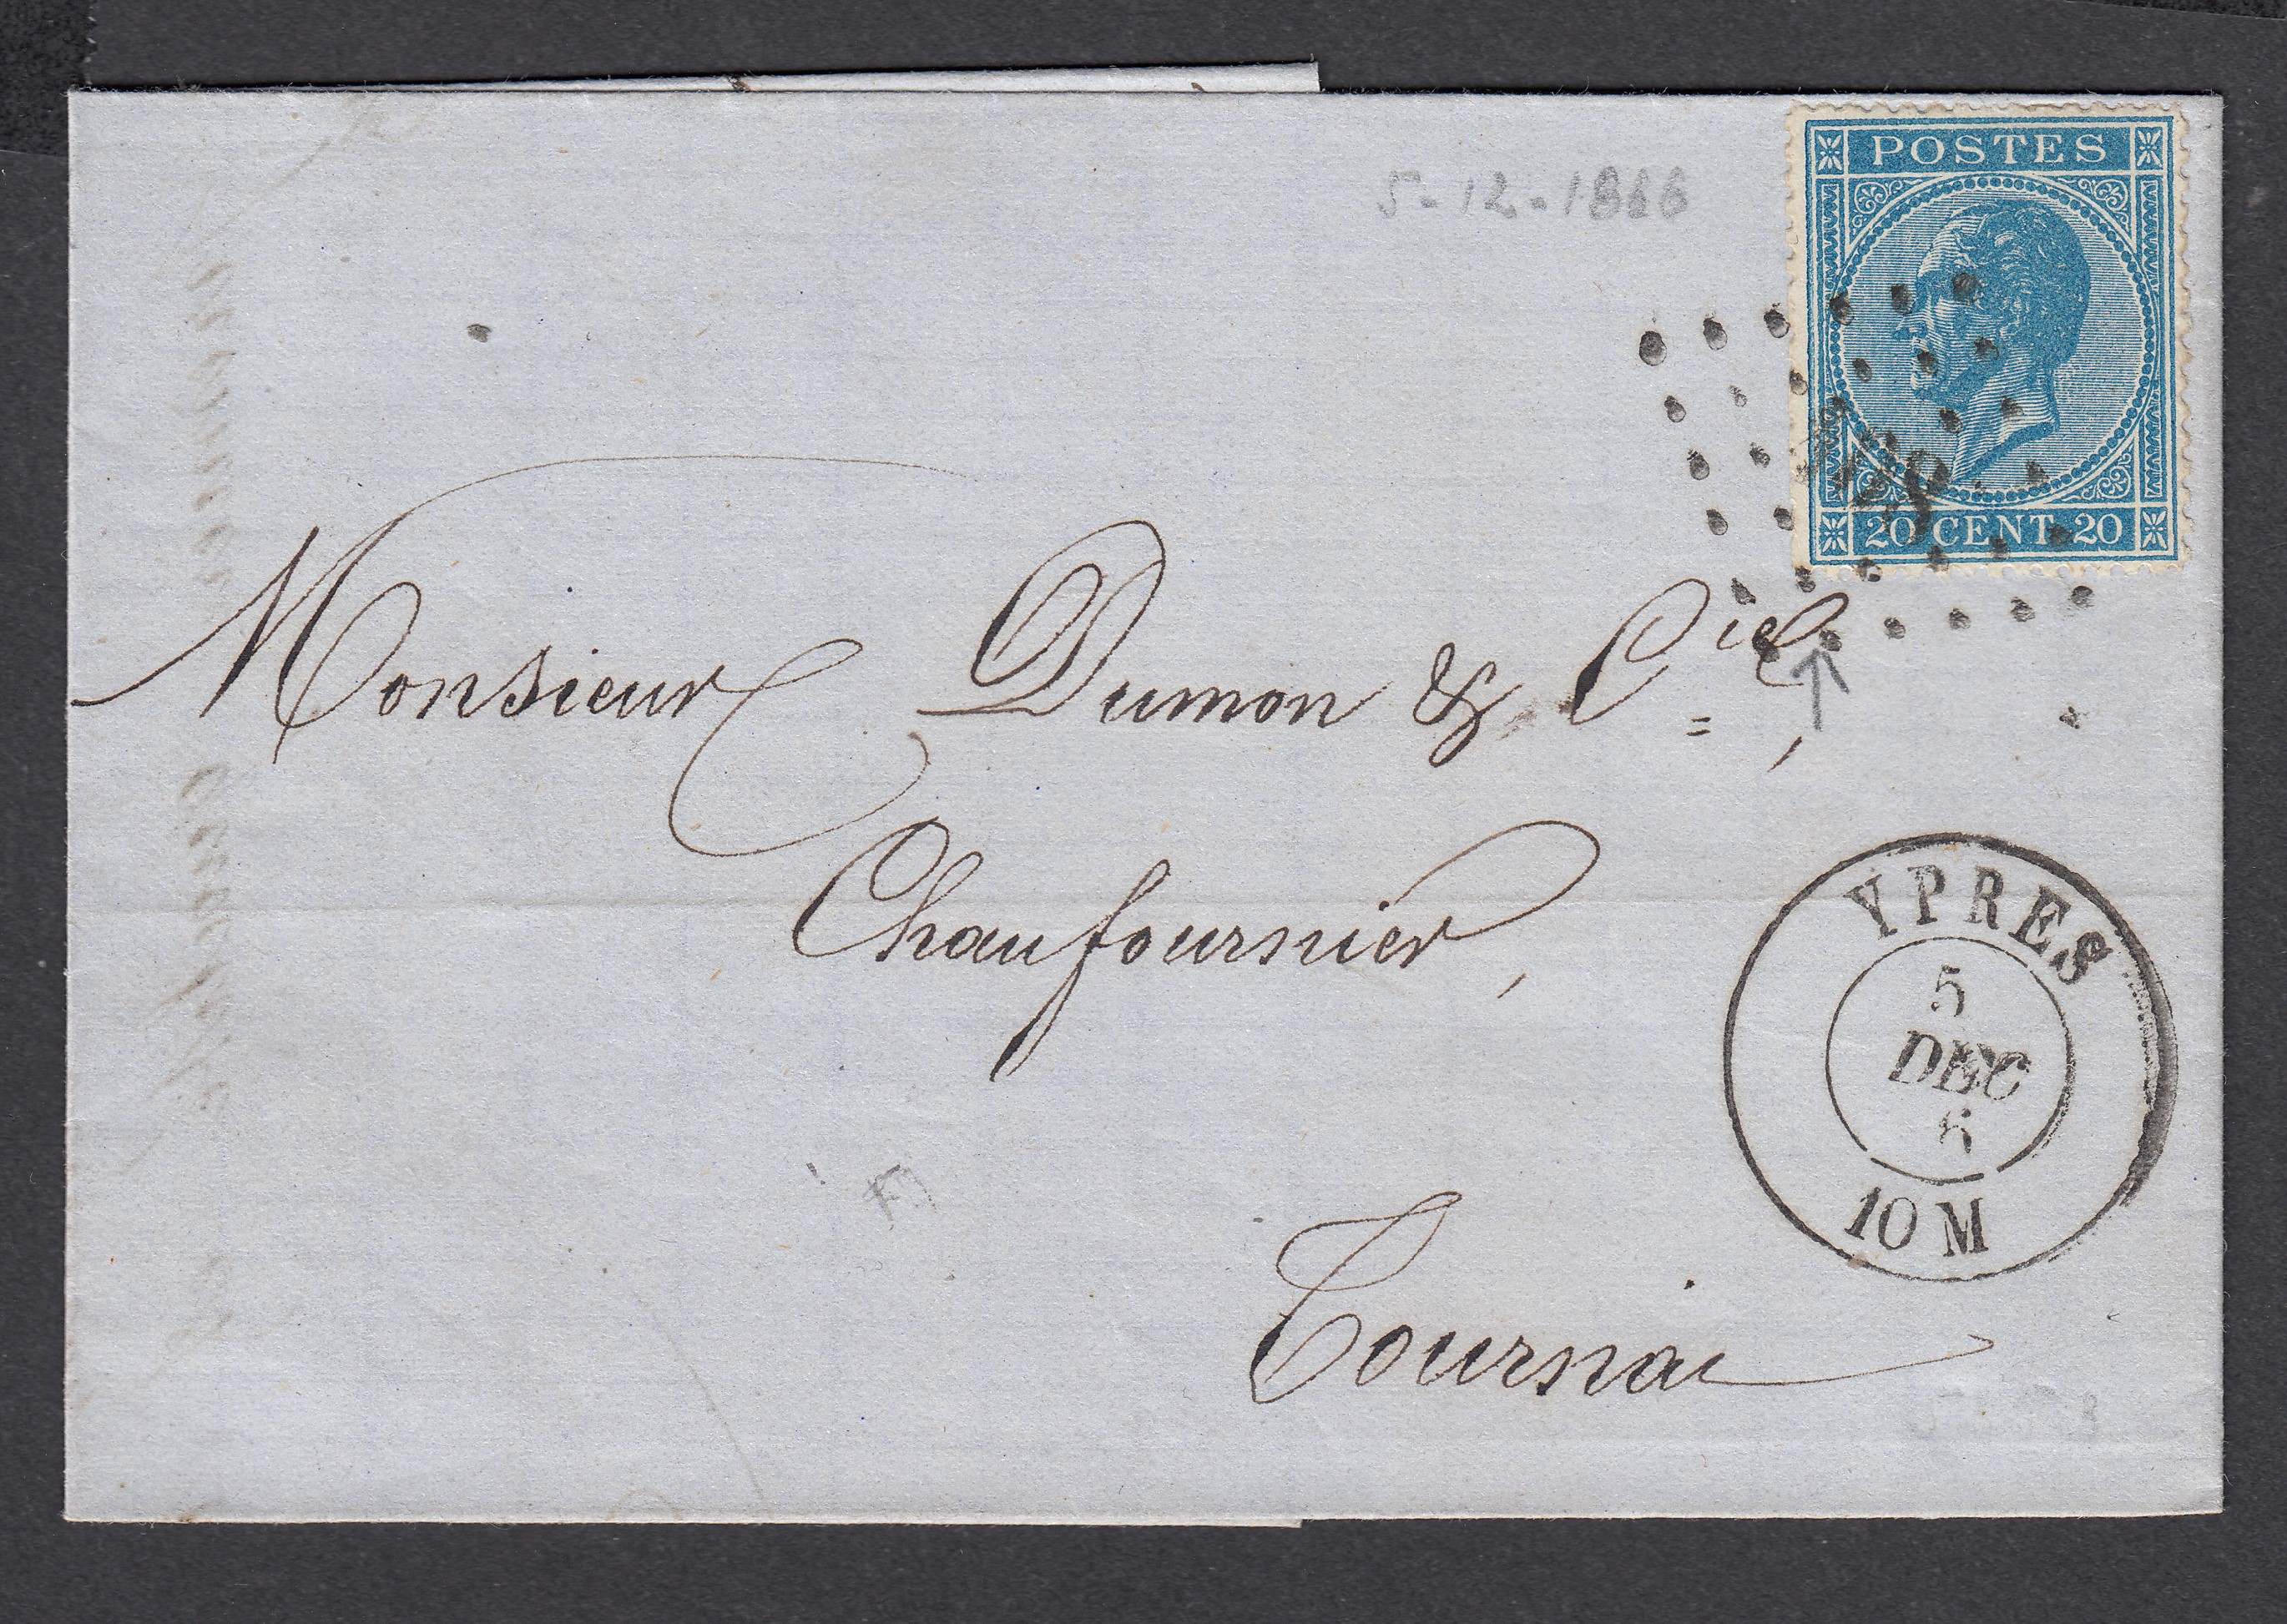 5-12-1866
POSTES
20 CENT. 20
Monsieur Dumon & Cie,
Chaufournier,
Tournai
YPRES
5
DEC
6
10 M